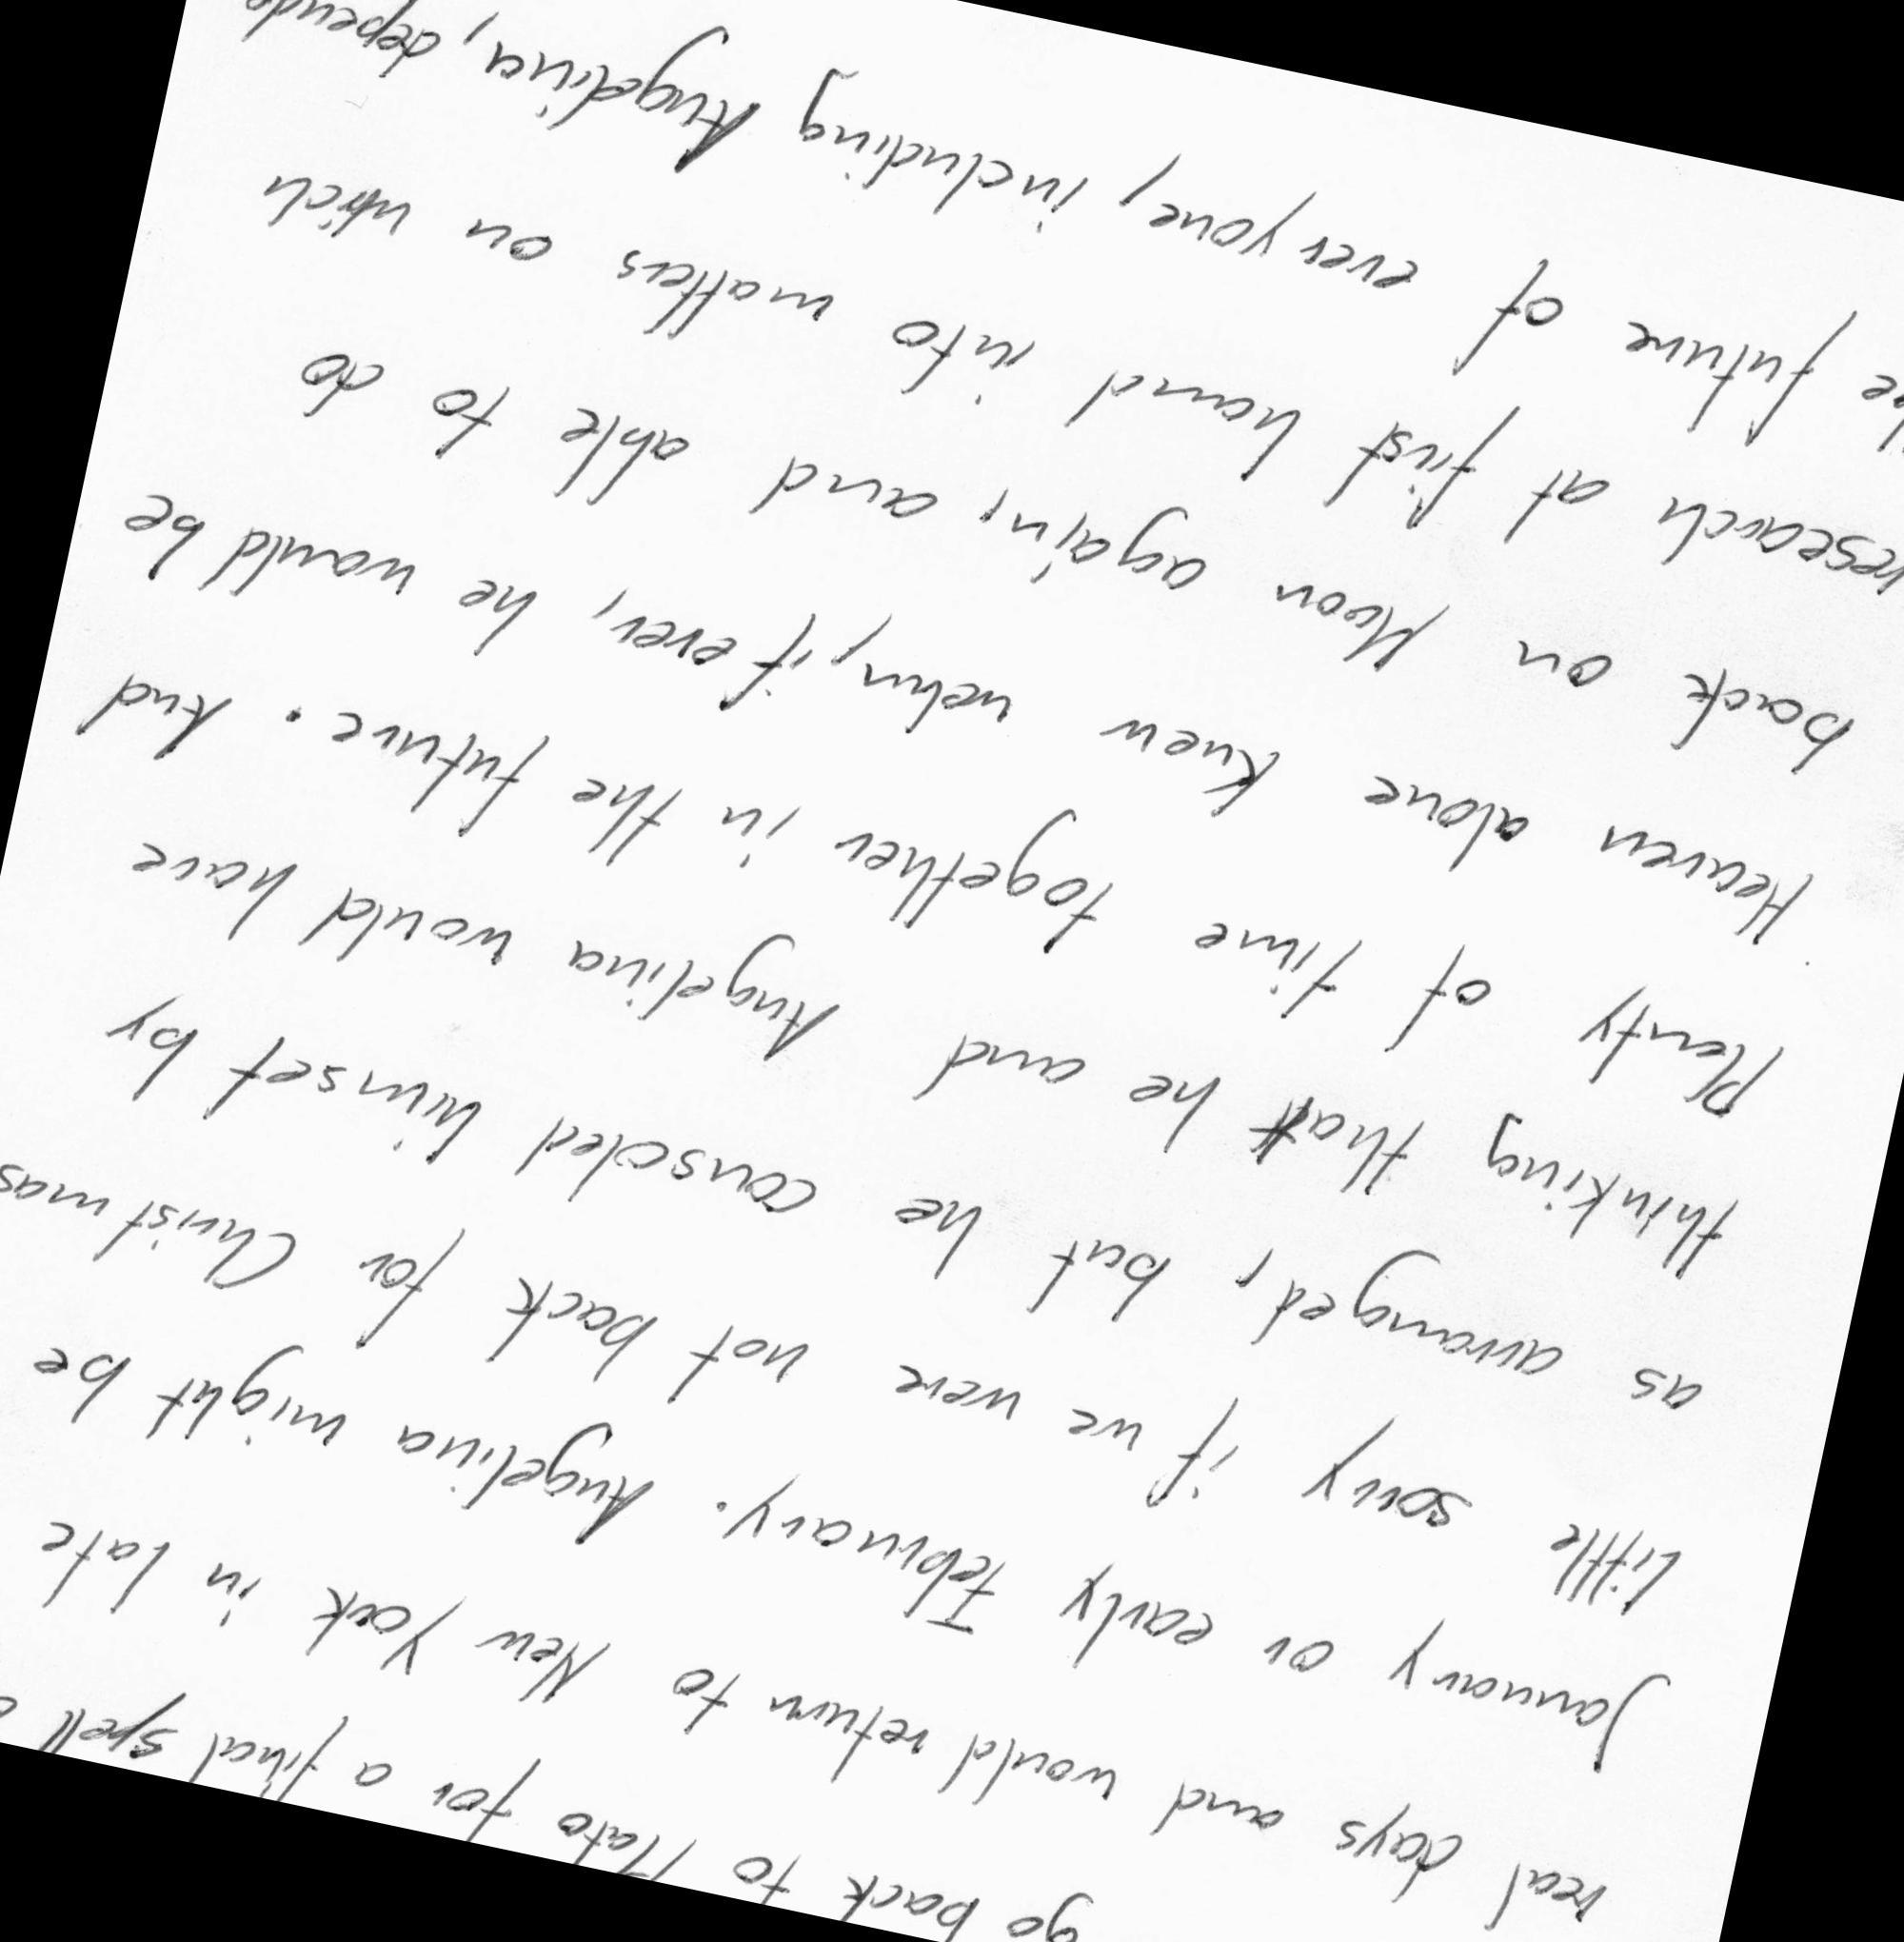 go back to Plato for a final spell
real days and would return to New York in late
January or early February. Angelina might be
little sorry if we were not back for Christmas
as arranged, but he consoled himsef by
thinking that he and Angelina would have
Plenty of time together in the future. And
Heaven alone knew wehn, if ever, he would be
back on Moon again, and able to do
research at first hand into matters on which
future of everyone, including Angelina, depende